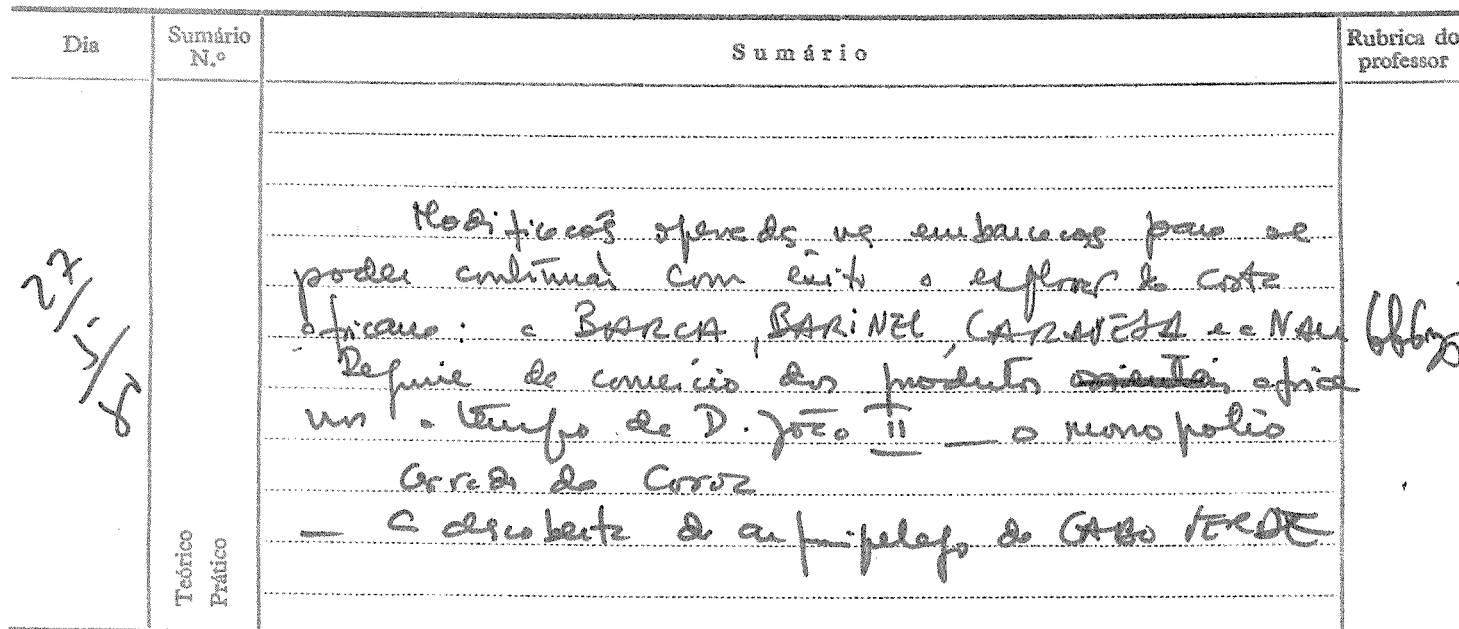 Dia
Sumário N.º
Sumário
Rubrica do professor
Modificações operadas nas embarcações para se
poder continuar com êxito a explorar da costa
africana: a BARCA, BARINEL, CARAVELA e a NAU
Regime de comércio dos produtos orientais africa
nos a tempo de D. João II — o monopólio
da Coroa
— a descoberta do arquipélago de CABO VERDE
Teórico
Prático